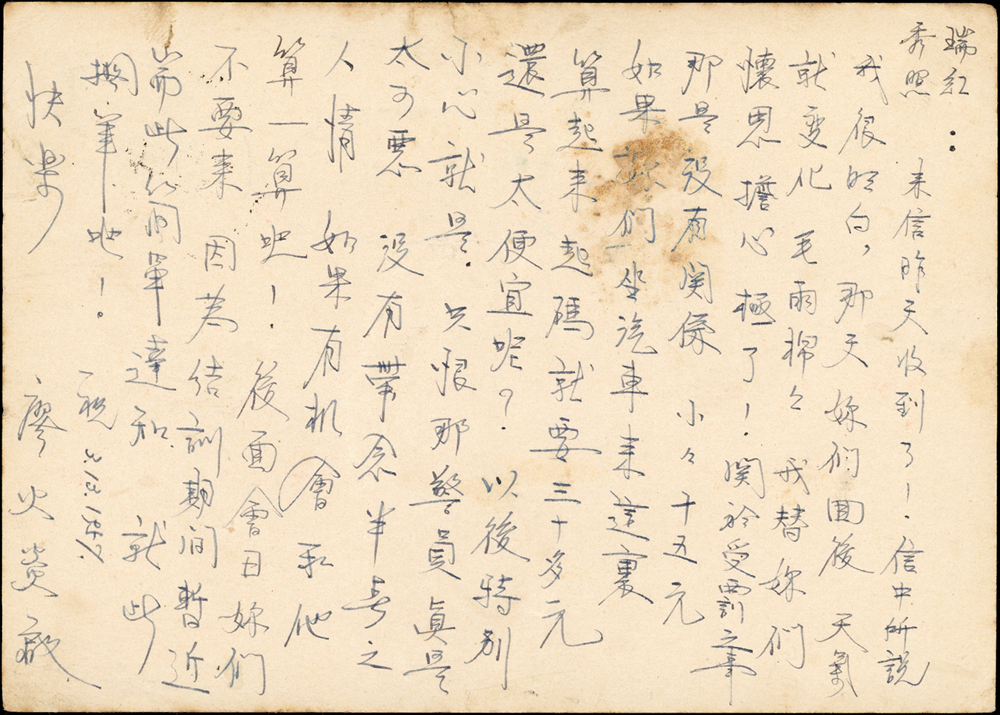 瑞紅
秀照：
來信昨天收到了！信中所説
我很明白，那天妳們囬後 天氣
就变化 毛雨棉々 我替妳們
懷思擔心極了！関於受罰之事
那是没有関係 小々十五元
如果妳們坐汽車来這裏
算起来起碼就要三十多元
還是太便宜呢？以後特别
小心就是．只恨那警員真是
太可悪 没有帶念半点之
人情 如果有机會和他
算一算吧！後面會日妳們
不要来 因為结訓期间暂近
耑此簡單達知 就此
擱筆吔！ 祝
快樂
廖火炎啟
3.13.1457.